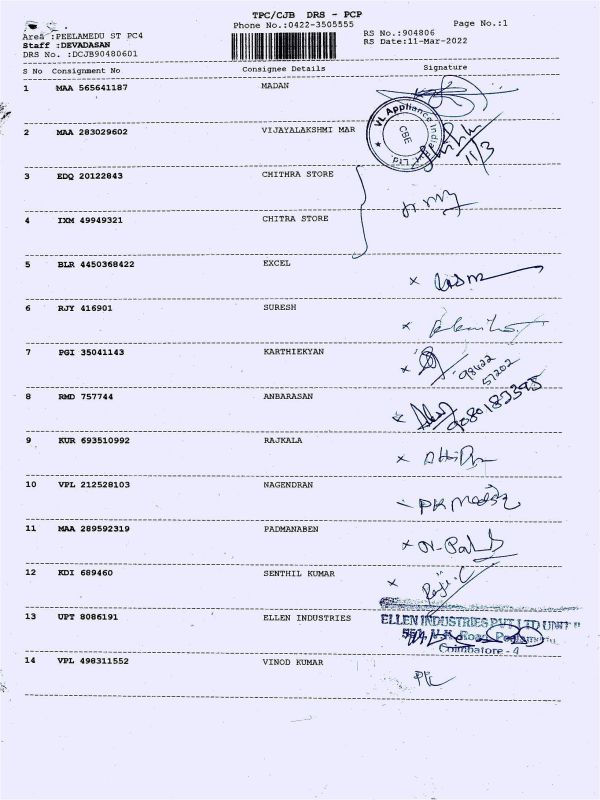 TPC/CJB DRS - PCP
Phone No.:0422-3505555
Page No.:1
Area :PEELAMEDU ST PC4
Staff :DEVADASAN
DRS No. :DCJB90480601
RS No.:904806
RS Date:11-Mar-2022
S No Consignment No Consignee Details Signature
1 MAA 565641187 MADAN
VL Appliance India Pvt Ltd.
CBE
2 MAA 283029602 VIJAYALAKSHMI MAR
11/3
3 EDQ 20122843 CHITHRA STORE
4 IXM 49949321 CHITRA STORE
5 BLR 4450368422 EXCEL
6 RJY 416901 SURESH
7 PGI 35041143 KARTHIEKYAN
98422
57202
8 RMD 757744 ANBARASAN
9080183395
9 KUR 693510992 RAJKALA
10 VPL 212528103 NAGENDRAN
11 MAA 289592319 PADMANABEN
12 KDI 689460 SENTHIL KUMAR
13 UPT 8086191 ELLEN INDUSTRIES
ELLEN INDUSTRIES PVT LTD UNIT II
Road,
Coimbatore - 4
14 VPL 498311552 VINOD KUMAR